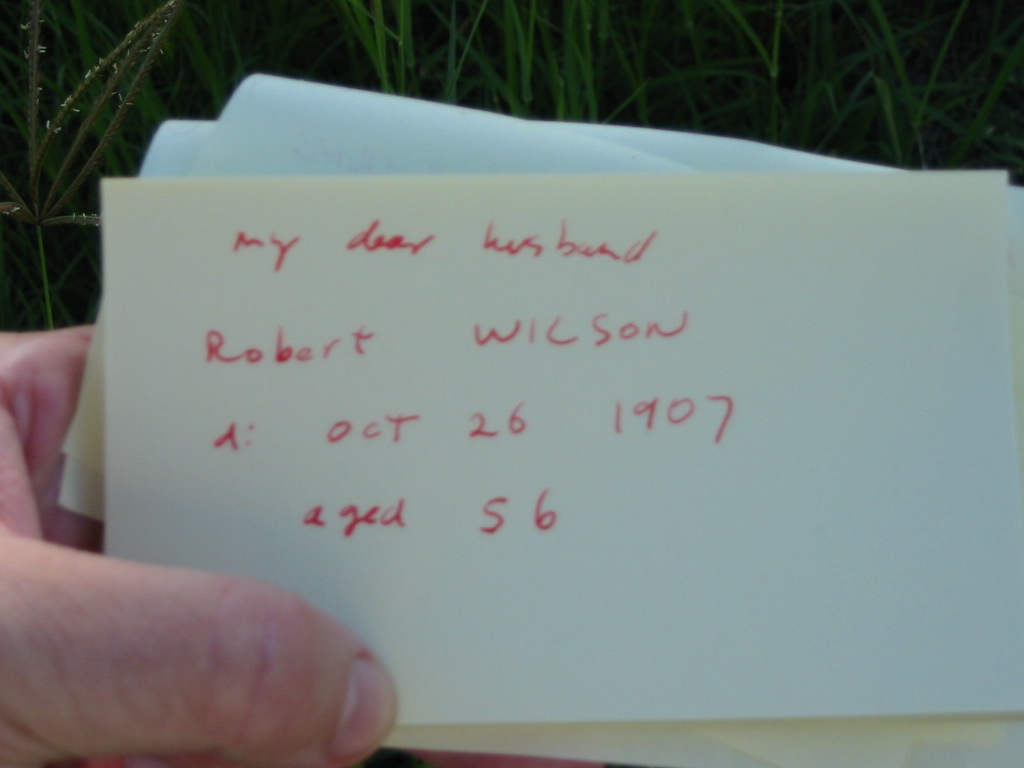 my dear husband
Robert WILSON
d: OCT 26 1907
aged 56